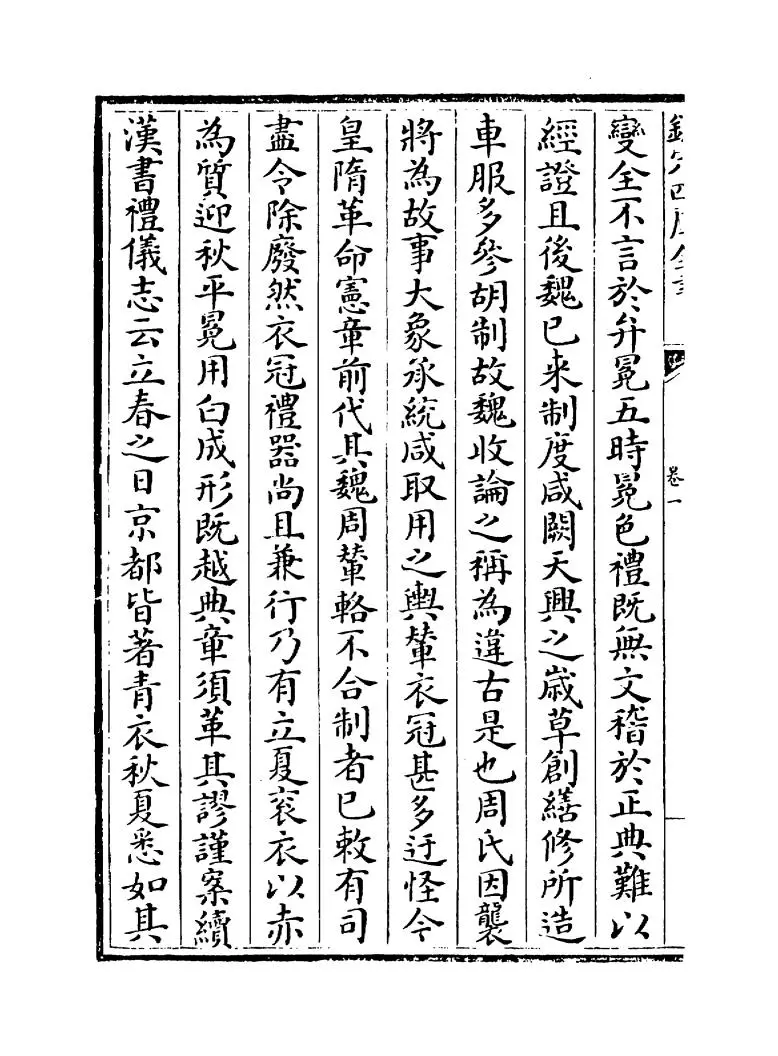 欽定四庫全書
卷一
變全不言於弁冕五時冕色禮既無文稽於正典難以
經證且後魏已来制度咸闕天興之歲草創繕修所造
車服多參胡制故魏收論之稱為違古是也周氏因襲
將為故事大象承統咸取用之輿輦衣冠甚多迂怪今
皇隋革命憲章前代其魏周輦輅不合制者已敕有司
盡令除廢然衣冠禮器尚且兼行乃有立夏衮衣以赤
為質迎秋平冕用白成形既越典章須革其謬謹案續
漢書禮儀志云立春之日京都皆著青衣秋夏悉如其